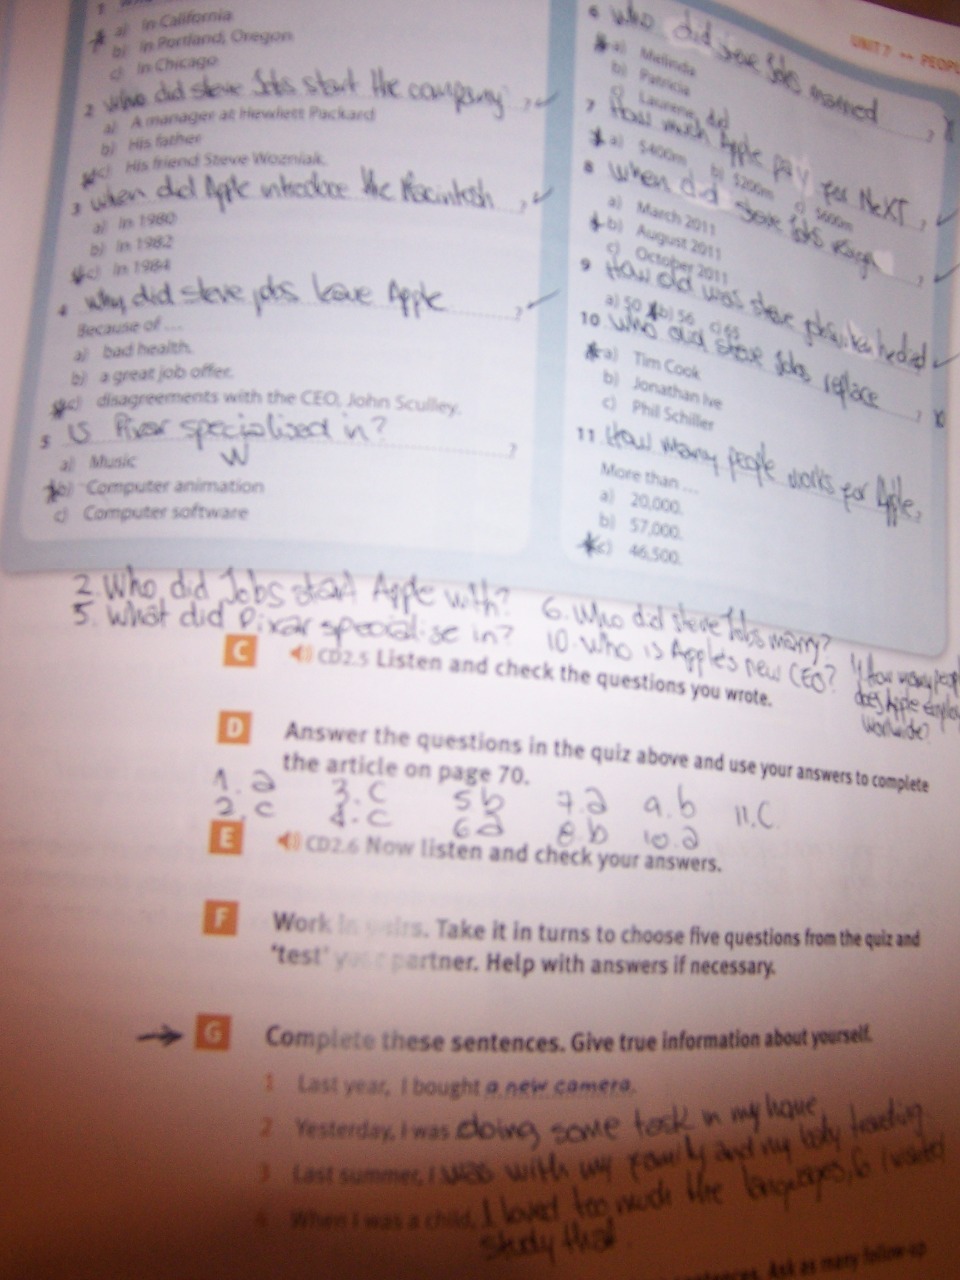 1
a) In California
b) In Portland, Oregon
c) In Chicago
2 who did steve Jobs start the company ?
a) A manager at Hewlett Packard
b) His father
c) His friend Steve Wozniak.
3 when did Apple introduce the Macintosh ?
a) In 1980
b) In 1982
c) In 1984
4 why did steve jobs leave Apple ?
Because of ...
a) bad health.
b) a great job offer.
c) disagreements with the CEO, John Sculley.
5 is Pixar specialised in? ?
W
a) Music
b) Computer animation
c) Computer software
UNIT 7 PEOPL
6 who did steve Jobs married ?
a) Melinda
b) Patricia
c) Laurene
7 How much did Apple pay for NeXT ?
a) $400m b) $200m c) $600m
8 when did steve Jobs resign ?
a) March 2011
b) August 2011
c) October 2011
9 How old was steve jobs
a) 50 b) 56 c)
10 who did steve Jobs replace ?
a) Tim Cook
b) Jonathan Ive
c) Phil Schiller
11 How many people works for Apple, ?
More than ...
a) 20,000.
b) 57,000.
c) 46,500.
2. Who did Jobs start Apple with?
5. What did Pixar specialise in?
6. Who did steve Jobs marry?
10. Who is Apple's new CEO?
How many peopl
does Apple employ
worlwide?
C CD2.5 Listen and check the questions you wrote.
D Answer the questions in the quiz above and use your answers to complete
the article on page 70.
1. a 3. c 5 b 7. a 9. b 11. C.
2. c 4. c 6 a 8. b 10. a
E CD2.6 Now listen and check your answers.
F Work in pairs. Take it in turns to choose five questions from the quiz and
'test' your partner. Help with answers if necessary.
G Complete these sentences. Give true information about yourself.
1 Last year, I bought a new camera.
2 Yesterday, I was doing some task in my house
3 Last summer, I was with my family and my
4 When I was a child, I loved too much the languages, so I wanted
study that.
Ask as many follow-up